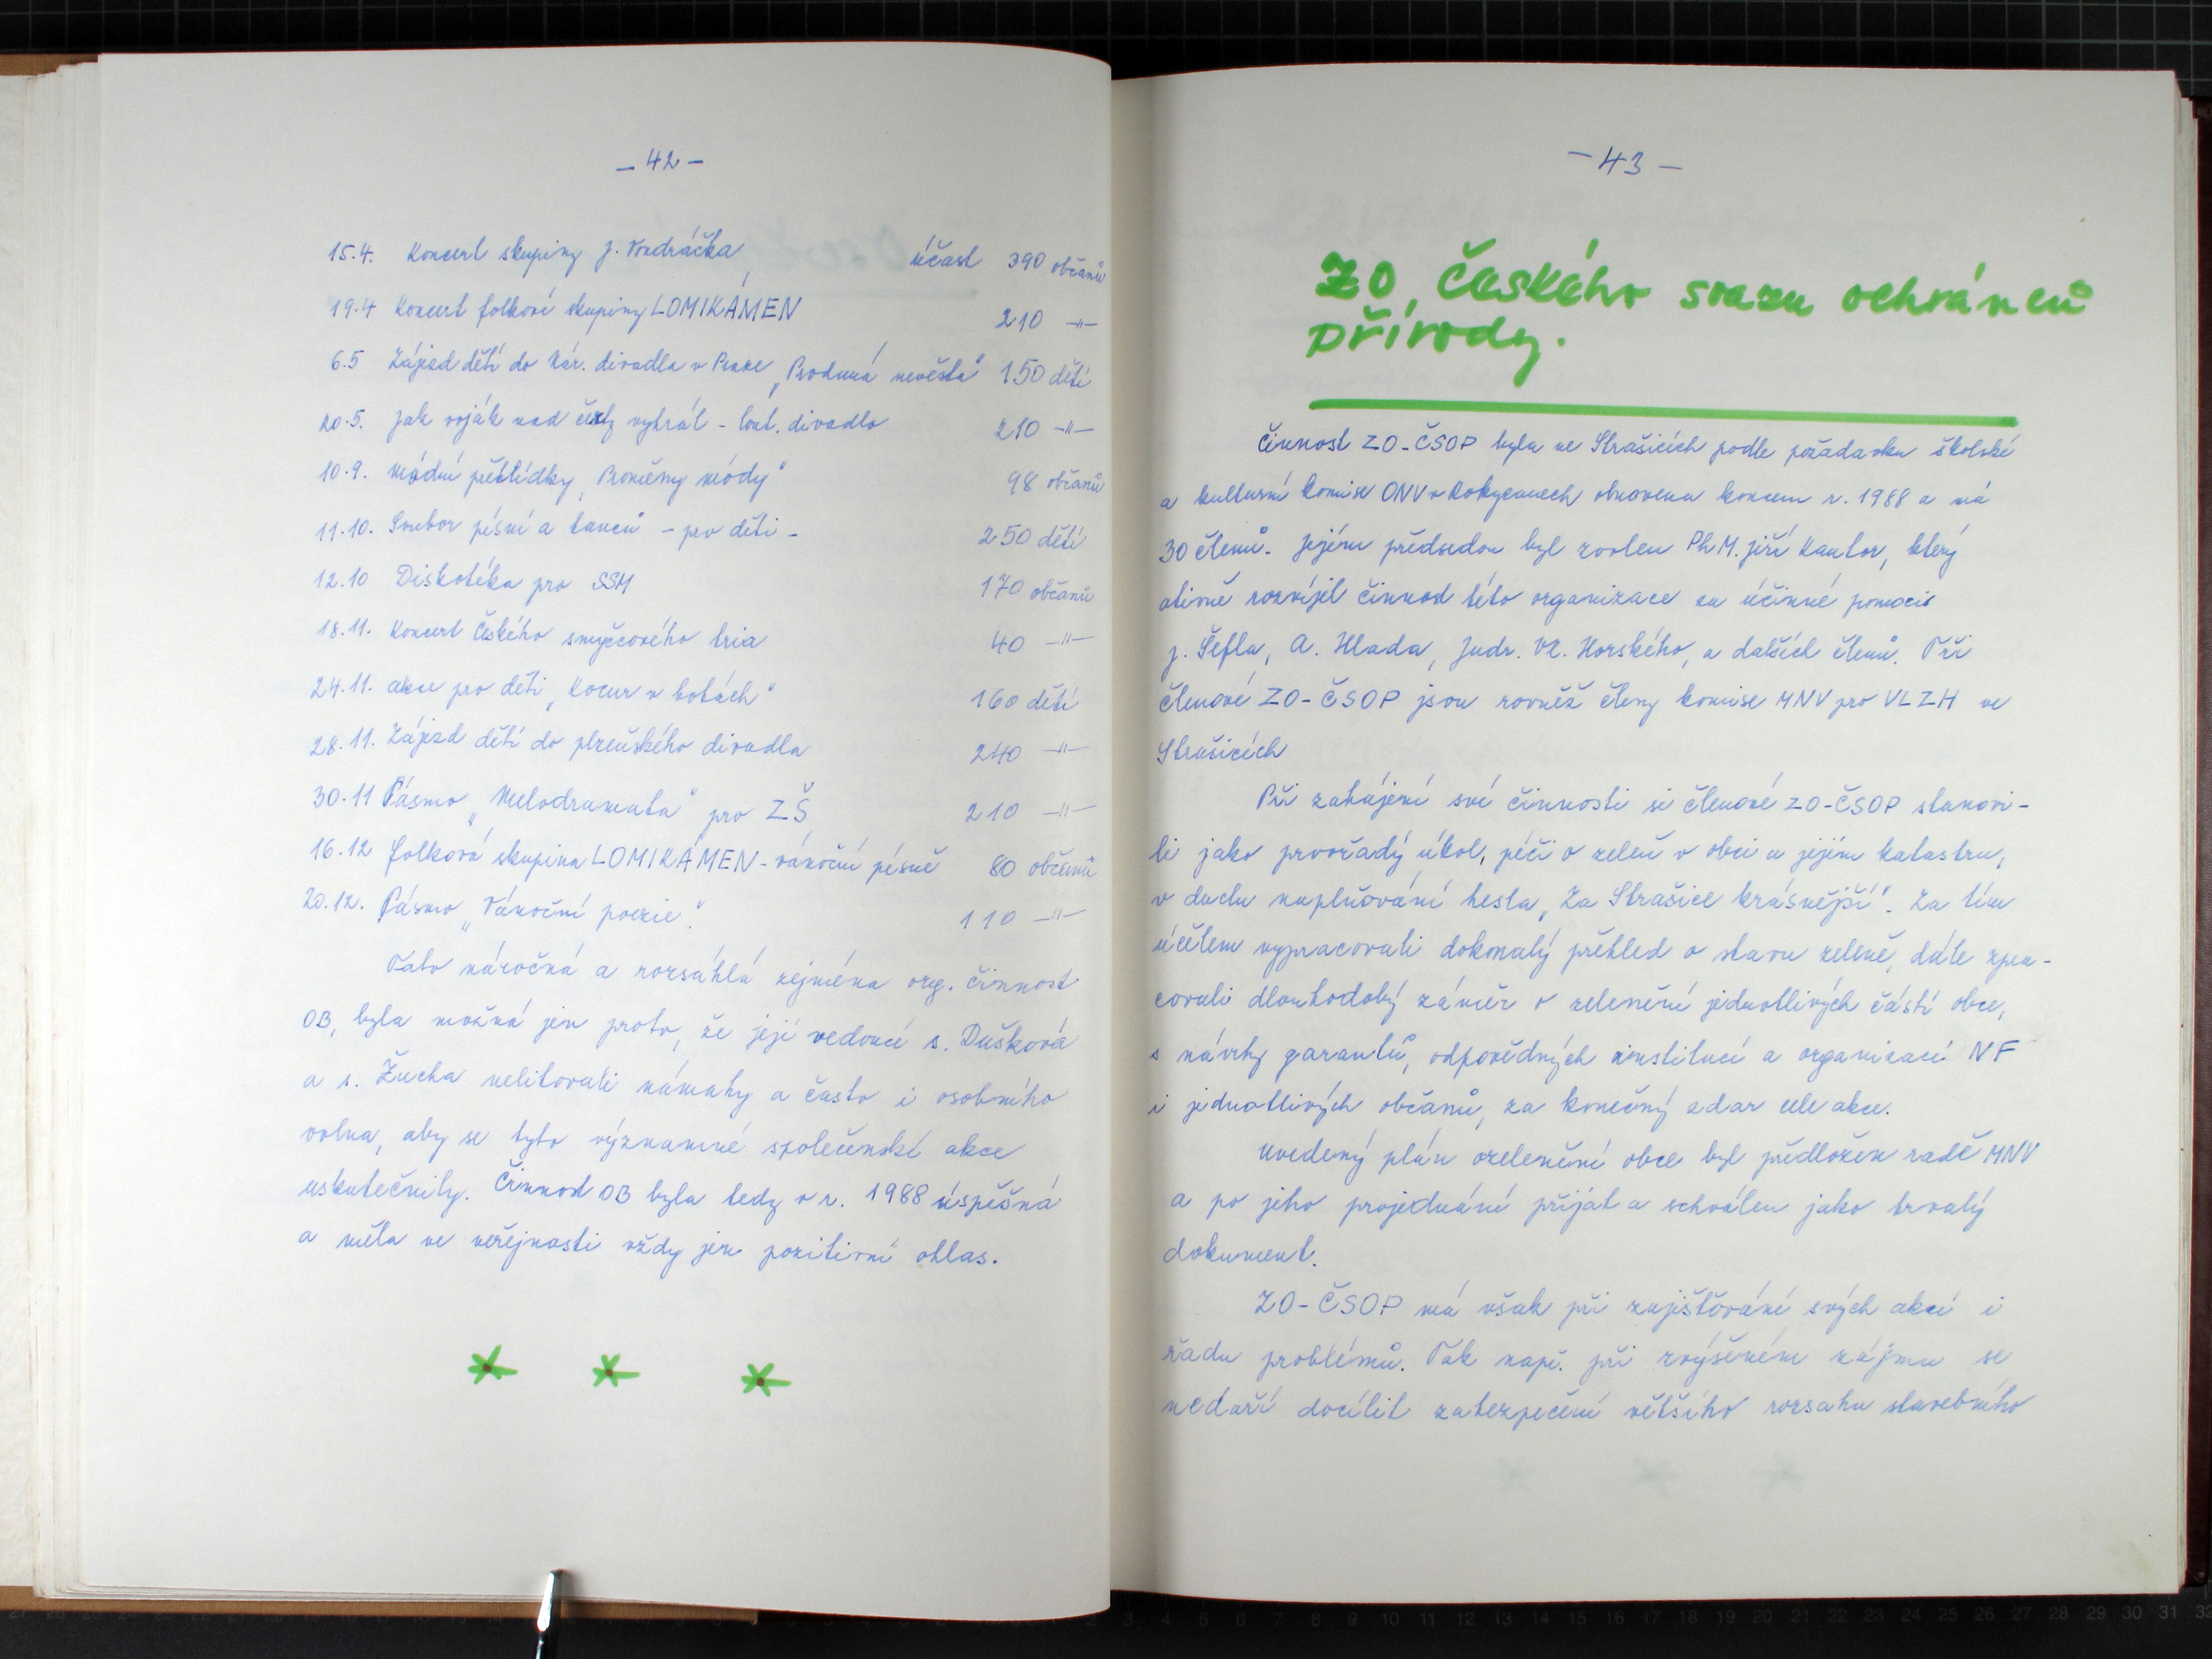 - 42 -
15.4. Koncert skupiny J. Vondráčka, účast 390 občanů
19.4 Koncert folkové skupiny LOMIKÁMEN 210 -"-
6.5 Zájezd dětí do Nár. divadla v Praze „Prodaná nevěsta" 150 dětí
20.5. Jak voják nad čerty vyhrál - lout. divadlo 210 -"-
10.9. Módní přehlídky „Proměny módy" 98 občanů
11.10. Soubor písní a tanců - pro děti - 250 dětí
12.10 Diskotéka pro SSM 170 občanů
18.11. Koncert Českého smyčcového tria 40 -"-
24.11. akce pro děti „Kocur v botách" 160 dětí
28.11. Zájezd dětí do plzeňského divadla 240 -"-
30.11 Pásmo „Melodramata" pro ZŠ 210 -"-
16.12 folková skupina LOMIKÁMEN - vánoční písně 80 občanů
20.12. Pásmo „Vánoční poezie". 110 -"-
Tato náročná a rozsáhlá zejména org. činnost
OB, byla možná jen proto, že její vedoucí s. Dušková
a s. Žucha nelitovali námahy a často i osobního
volna, aby se tyto významné společenské akce
uskutečnily. Činnost OB byla tedy v r. 1988 úspěšná
a měla ve veřejnosti vždy jen pozitivní ohlas.
- 43 -
ZO, Českého svazu ochránců
přírody.
Činnost ZO-ČSOP byla ve Strašicích podle požadavku školské
a kulturní komise ONV v Rokycanech obnovena koncem r. 1988 a má
30 členů. Jejím předsedou byl zvolen PhM. Jiří Kantor, který
ativně rozvíjel činnost této organizace za účinné pomoci
J. Šefla, A. Hlada, Judr. Vl. Horského, a dalších členů. Tři
členové ZO-ČSOP jsou rovněž členy komise MNV pro VLZH ve
Strašicích
Při zahájení své činnosti si členové ZO-ČSOP stanovi-
li jako prvořadý úkol, péči o zeleň v obci a jejím katastru,
v duchu naplňování hesla „Za Strašice krásnější". Za tím
účelem vypracovali dokonalý přehled o stavu zeleně, dále zpra-
covali dlouhodobý záměr o zelenění jednotlivých částí obce,
s návrhy garantů, odpovědných institucí a organizací NF
i jednotlivých občanů, za konečný zdar celé akce.
Uvedený plán ozelenění obce byl předložen radě MNV
a po jeho projednání přijat a schválen jako trvalý
dokument.
ZO-ČSOP má však při zajišťování svých akcí i
řadu problémů. Tak např. při zvýšeném zájmu se
nedaří docílit zabezpečení většího rozsahu stavebního
3 4 5 6 7 8 9 10 11 12 13 14 15 16 17 18 19 20 21 22 23 24 25 26 27 28 29 30 31 32